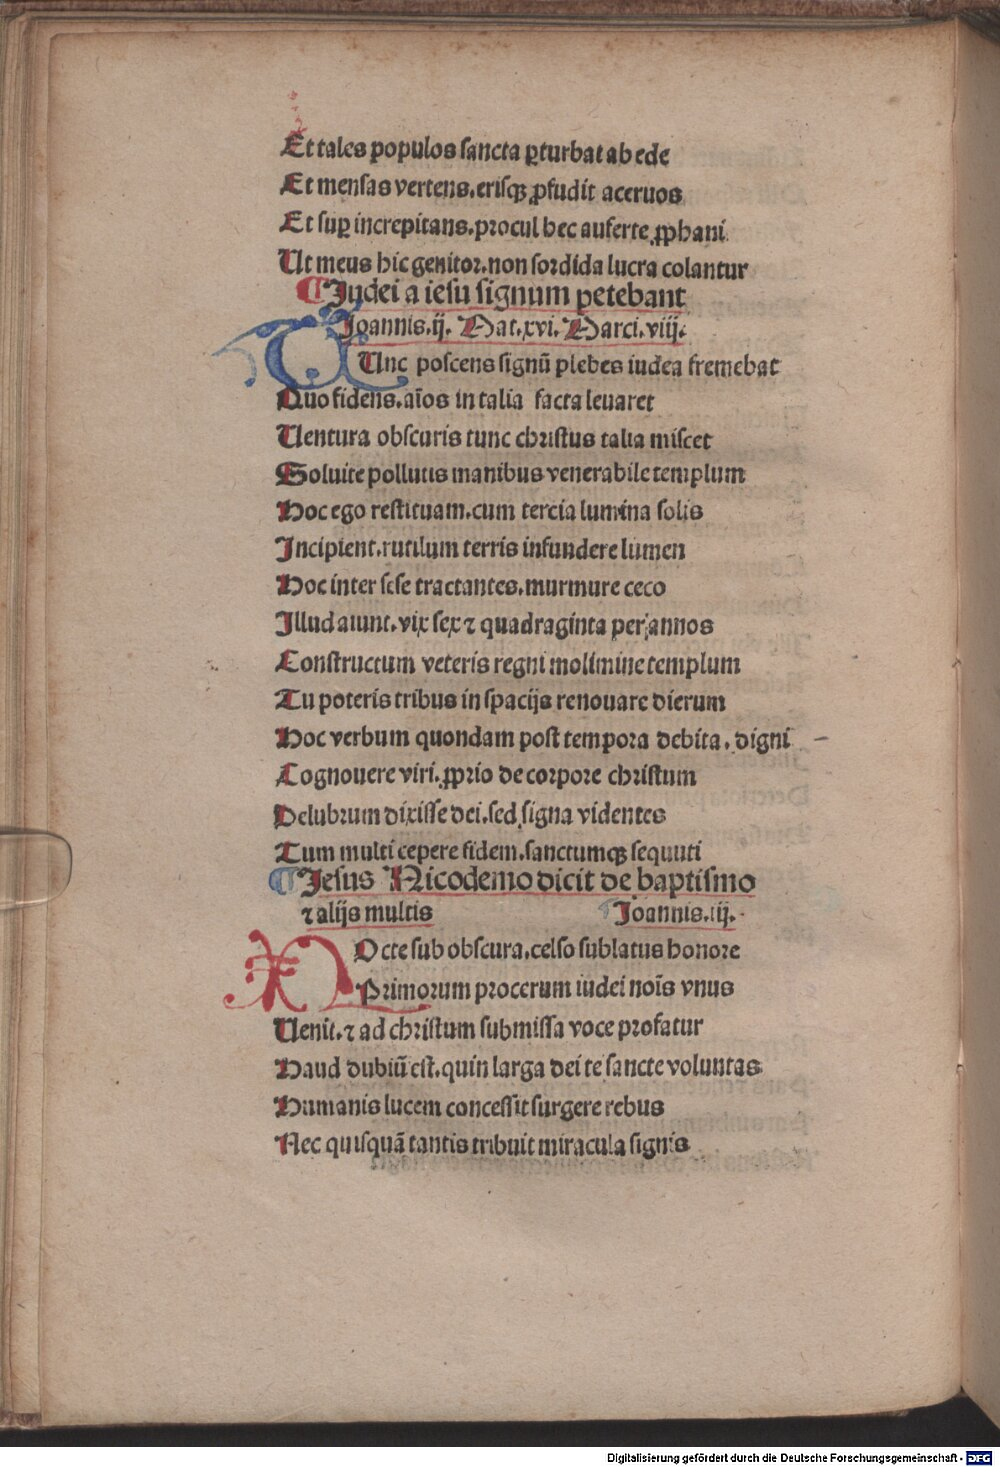 Et tales populos sancta ꝑturbat ab ede
Et mensas vertens.erisqꝫ ꝓfudit aceruos
Et suꝑ increpitans.procul hec auferte ꝓphani
Ut meus hic genitor.non sordida lucra colantur
¶Judei a iesu signum petebant
Joannis.ij. Mat.xvi. Marci.viij.
TUnc poscens signū plebes iudea fremebat
Quo fidens.aīos in talia facta leuaret
Uentura obscuris tunc christus talia miscet
Soluite pollutis manibus venerabile templum
Hoc ego restituam.cum tercia lumina solis
Incipient.rutilum terris infundere lumen
Hoc inter sese tractantes.murmure ceco
Illud aiunt.vix sex ⁊ quadraginta per annos
Constructum veteris regni molimine templum
Tu poteris tribus in spacijs renouare dierum
Hoc verbum quondam post tempora debita.digni
Cognouere viri.ꝓprio de corpore christum
Delubrum dixisse dei.sed signa videntes
Tum multi cepere fidem.sanctumqꝫ sequuti
¶Jesus Nicodemo dicit de baptismo
⁊ alijs multis Joannis.iij.
NOcte sub obscura.celso sublatus honore
Primorum procerum iudei noīs vnus
Uenit.⁊ ad christum submissa voce profatur
Haud dubiū est.quin larga dei te sancte voluntas
Humanis lucem concessit surgere rebus
Nec quisquā tantis tribuit miracula signis
Digitalisierung gefördert durch die Deutsche Forschungsgemeinschaft - DFG